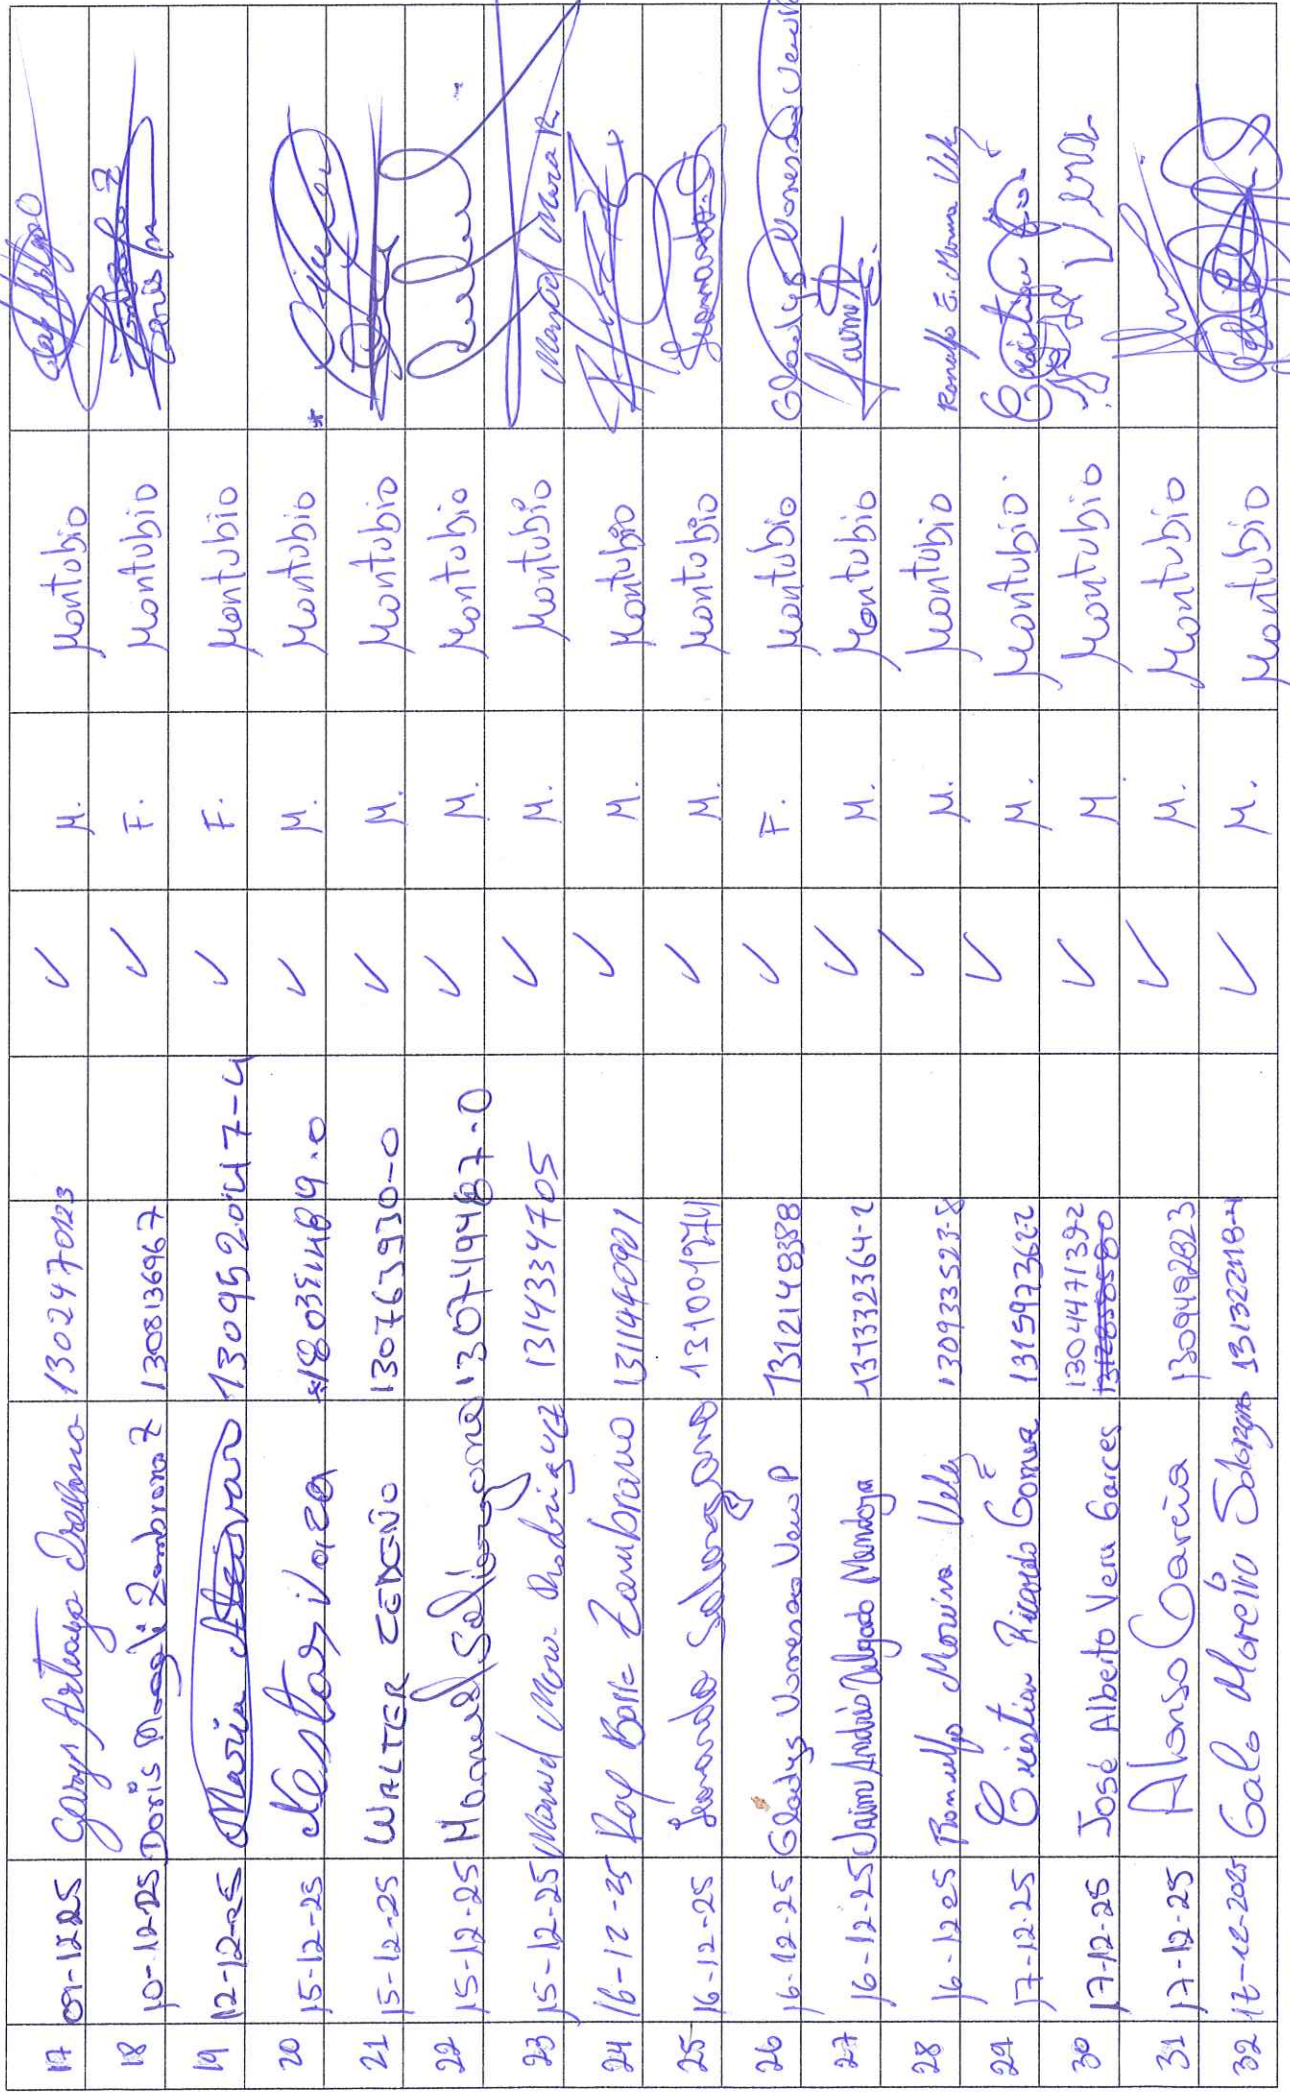 17 09-12-25 Garys Arteaga Orellana 1302470123 ✓ M. Montubio
18 10-12-25 Doris Magali Zambrano Z 1308136967 ✓ F. Montubio Zambrano Z Doris M
19 12-12-25 Maria 130952047-4 ✓ F. Montubio
20 15-12-25 Nestor *180351489.0 ✓ M. Montubio *
21 15-12-25 WALTER CEDEÑO 130763930-0 ✓ M. Montubio
22 15-12-25 Manuel Solorzano 130749487.0 ✓ M. Montubio
23 15-12-25 Manuel Mora Rodriguez 1314334705 ✓ M. Montubio Manuel Mora R.
24 16-12-25 Ray Zambrano 1311440901 ✓ M. Montubio
25 16-12-25 Leonardo Solorzano 1310019274 ✓ M. Montubio Leonardo S
26 16-12-25 Gladys Vera P 1312149388 ✓ F. Montubio Gladys
27 16-12-25 Jaime Andrés Delgado Mendoza 131332364-2 ✓ M. Montubio Jaime D.
28 16-12-25 Romulfo Moreira Velez 130933523-8 ✓ M. Montubio
29 17-12-25 Cristian Ricardo Gómez 131597362-2 ✓ M. Montubio Cristian
30 17-12-25 José Alberto Vera Garces 130447139-2 ✓ M Montubio Vera
31 17-12-25 Alonso Garcia 1309492823 ✓ M. Montubio
32 17-12-2025 Galo Moreira Solorzano 131322118-4 ✓ M. Montubio